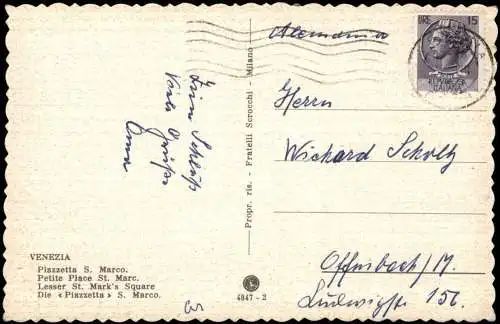 Alemania
LIRE 15
REPUBBLICA
ITALIANA
Herrn
Wichard Scholtz
Offenbach/M.
Ludwigstr. 156.
Viele Grüße
Propr. ris. - Fratelli Scrocchi - Milano
VENEZIA
Piazzetta S. Marco.
Petite Place St. Marc.
Lesser St. Mark's Square
Die «Piazzetta» S. Marco.
4847 - 2